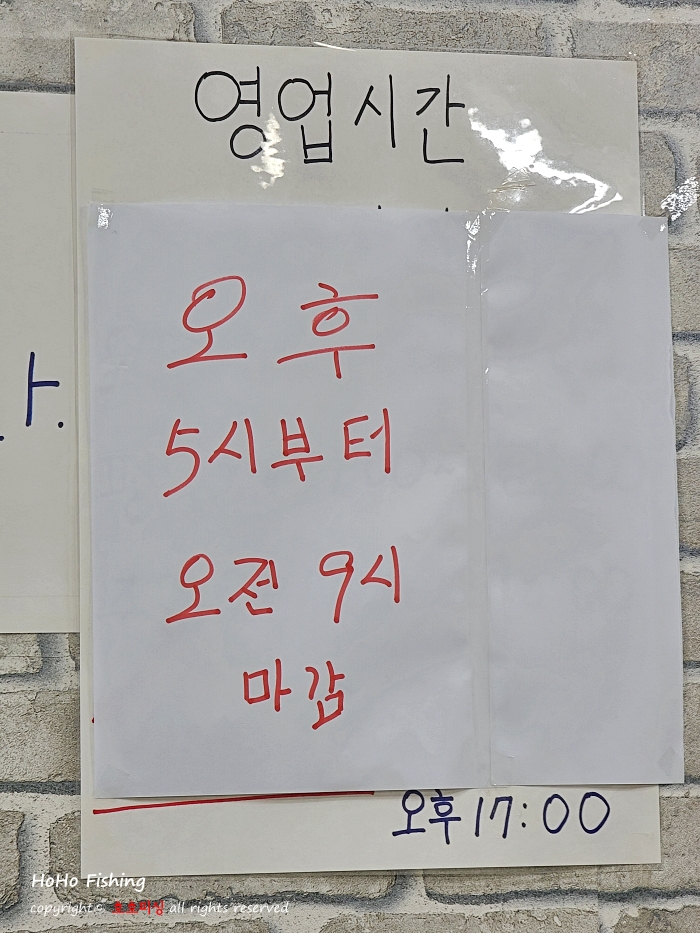 영업시간
오후
5시부터
오전 9시
마감
오후 17:00
HoHo Fishing
copyright © 호호피싱 all rights reserved